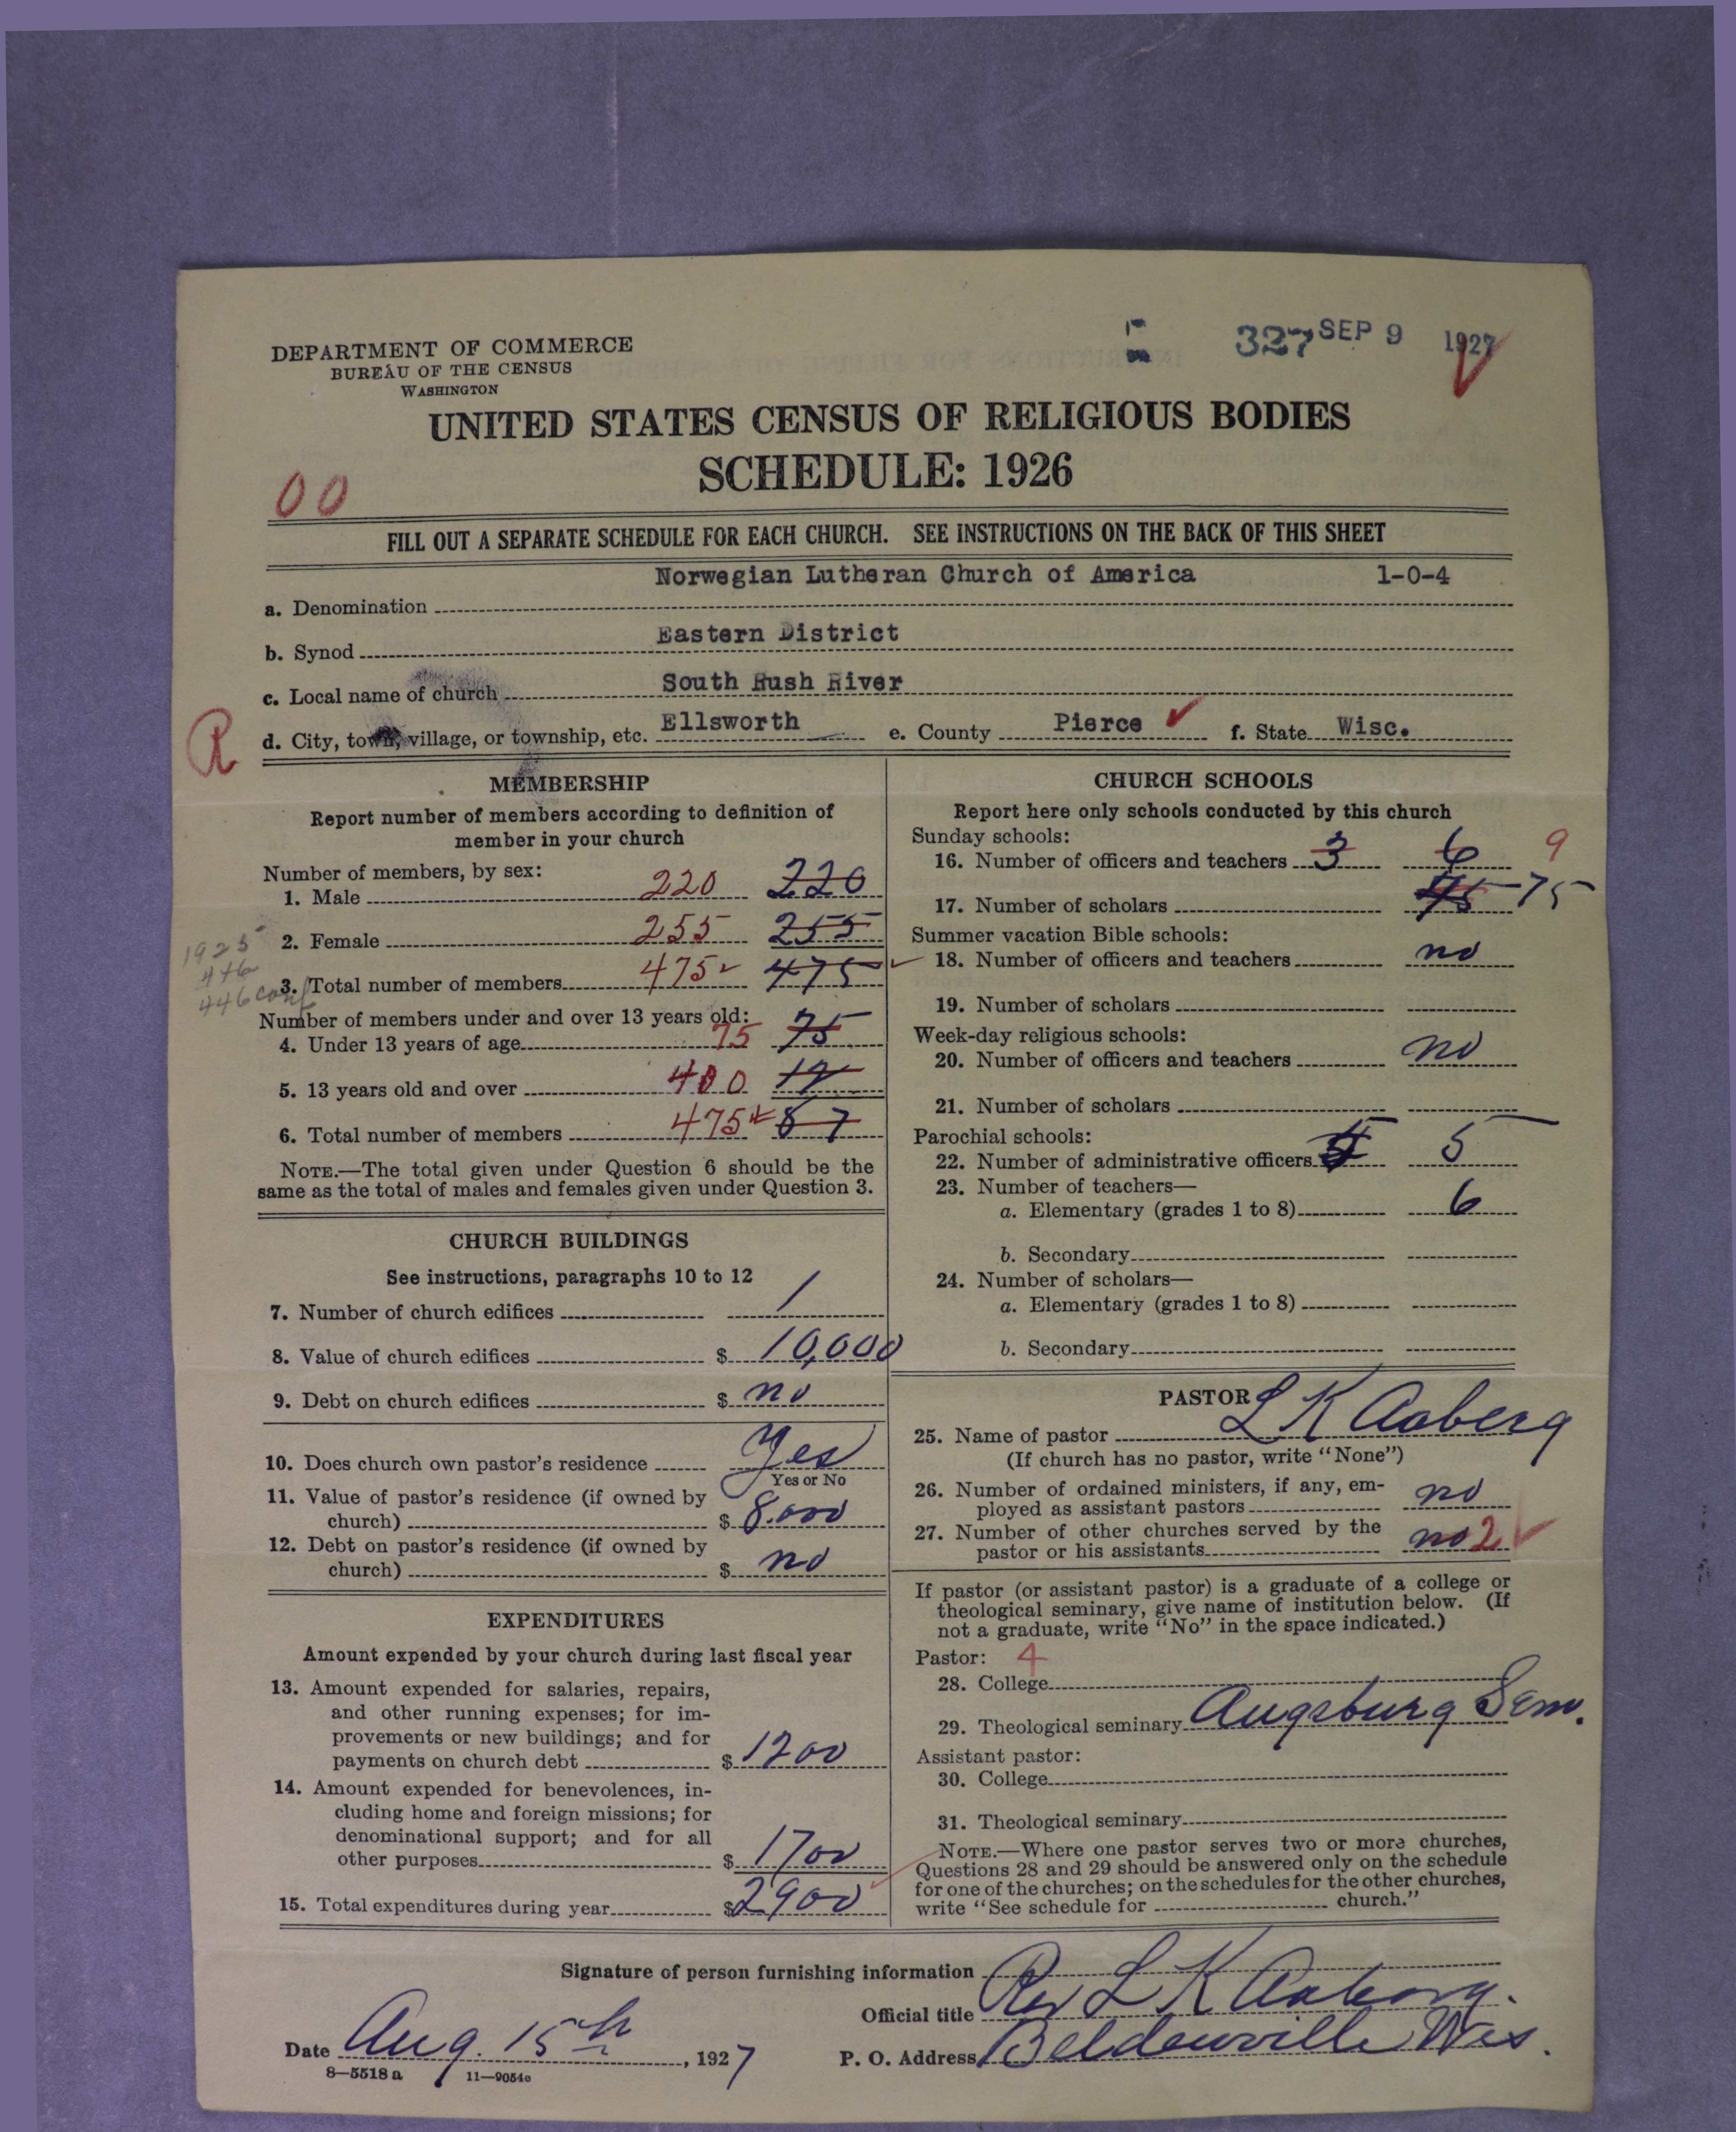 DEPARTMENT OF COMMERCE
BUREAU OF THE CENSUS
WASHINGTON
327 SEP 9 1927
UNITED STATES CENSUS OF RELIGIOUS BODIES
SCHEDULE: 1926
00
FILL OUT A SEPARATE SCHEDULE FOR EACH CHURCH. SEE INSTRUCTIONS ON THE BACK OF THIS SHEET
Norwegian Lutheran Church of America 1-0-4
a. Denomination
b. Synod Eastern District
c. Local name of church South Rush River
R
d. City, town, village, or township, etc. Ellsworth e. County Pierce f. State Wisc.
MEMBERSHIP
Report number of members according to definition of
member in your church
Number of members, by sex:
1. Male 220 220
2. Female 255 255
1925
446
446 conf
3. Total number of members 475 475
Number of members under and over 13 years old:
4. Under 13 years of age 75 75
5. 13 years old and over 400 12
6. Total number of members 475 87
NOTE.—The total given under Question 6 should be the
same as the total of males and females given under Question 3.
CHURCH BUILDINGS
See instructions, paragraphs 10 to 12
7. Number of church edifices 1
8. Value of church edifices $ 10,000
9. Debt on church edifices $ no
10. Does church own pastor's residence Yes
Yes or No
11. Value of pastor's residence (if owned by
church) $ 8.000
12. Debt on pastor's residence (if owned by
church) $ no
EXPENDITURES
Amount expended by your church during last fiscal year
13. Amount expended for salaries, repairs,
and other running expenses; for im-
provements or new buildings; and for
payments on church debt $ 1200
14. Amount expended for benevolences, in-
cluding home and foreign missions; for
denominational support; and for all
other purposes $ 1700
15. Total expenditures during year $ 2900
CHURCH SCHOOLS
Report here only schools conducted by this church
Sunday schools:
16. Number of officers and teachers 3 6 9
17. Number of scholars 75 75
Summer vacation Bible schools:
18. Number of officers and teachers no
19. Number of scholars
Week-day religious schools:
20. Number of officers and teachers no
21. Number of scholars
Parochial schools:
22. Number of administrative officers 5
23. Number of teachers—
a. Elementary (grades 1 to 8) 6
b. Secondary
24. Number of scholars—
a. Elementary (grades 1 to 8)
b. Secondary
PASTOR
25. Name of pastor L K Aaberg
(If church has no pastor, write "None")
26. Number of ordained ministers, if any, em-
ployed as assistant pastors no
27. Number of other churches served by the
pastor or his assistants no 2
If pastor (or assistant pastor) is a graduate of a college or
theological seminary, give name of institution below. (If
not a graduate, write "No" in the space indicated.)
Pastor: 4
28. College
29. Theological seminary Augsburg Sem.
Assistant pastor:
30. College
31. Theological seminary
NOTE.—Where one pastor serves two or more churches,
Questions 28 and 29 should be answered only on the schedule
for one of the churches; on the schedules for the other churches,
write "See schedule for church."
Signature of person furnishing information
Official title Rev L K Aaberg.
Date Aug. 15th, 1927 P. O. Address Beldenville Wis.
8—5518 a 11—9054c